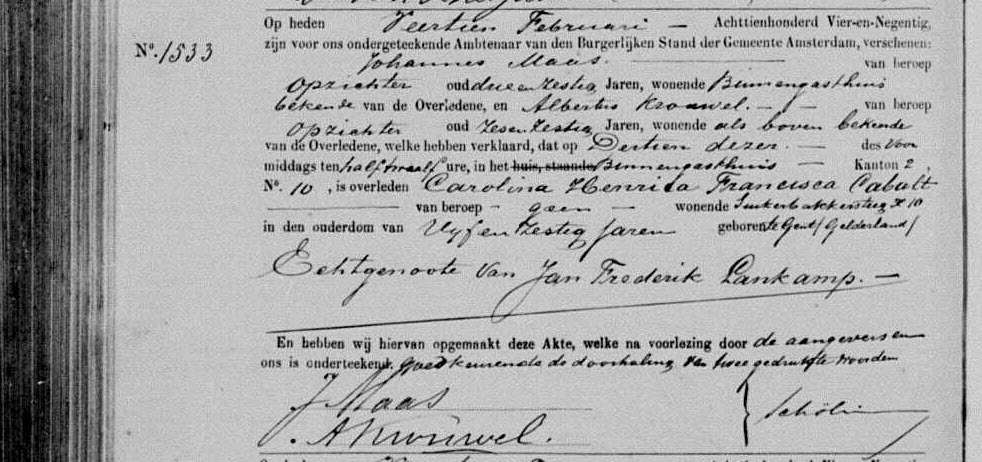 Op heden Veertien Februari — Achttienhonderd Vier-en-Negentig,
Nº. 1533 zijn voor ons ondergeteekende Ambtenaar van den Burgerlijken Stand der Gemeente Amsterdam, verschenen:
Johannes Maas. van beroep
Opzichter oud drie en zestig Jaren, wonende Binnengasthuis
bekende van de Overledene, en Albertus Krouwel. — van beroep
Opzichter oud Zes en Zestig Jaren, wonende als boven bekende
van de Overledene, welke hebben verklaard, dat op Dertien dezer. — des Voor
middags ten half twaalf ure, in het huis, staande Binnengasthuis — Kanton 2,
Nº. 10, is overleden Carolina Henrica Francisca Cabalt
van beroep — geen — wonende Suikerbakkersteeg 10
in den ouderdom van Vyf en Zestig Jaren geboren te Gent (Gelderland)
Echtgenoote van Jan Frederik Lankamp. —
En hebben wij hiervan opgemaakt deze Akte, welke na voorlezing door de aangevers en
ons is onderteekend. Goedkeurende de doorhaling van twee gedrukte woorden
J Maas
A Krouwel.